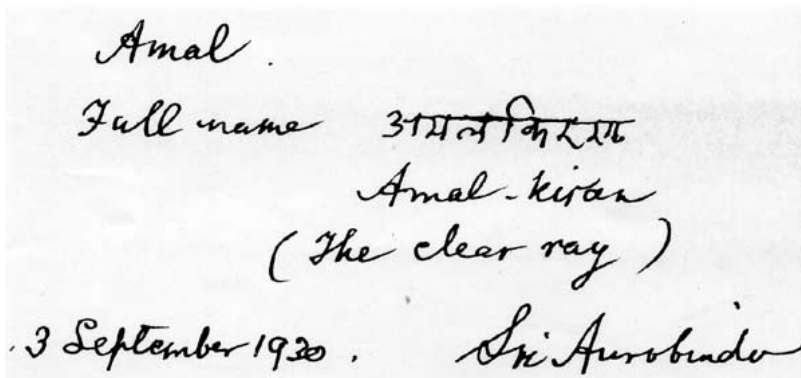 Amal.
Full name अमलकिरण
Amal-kiran
(The clear ray)
3 September 1930. Sri Aurobindo